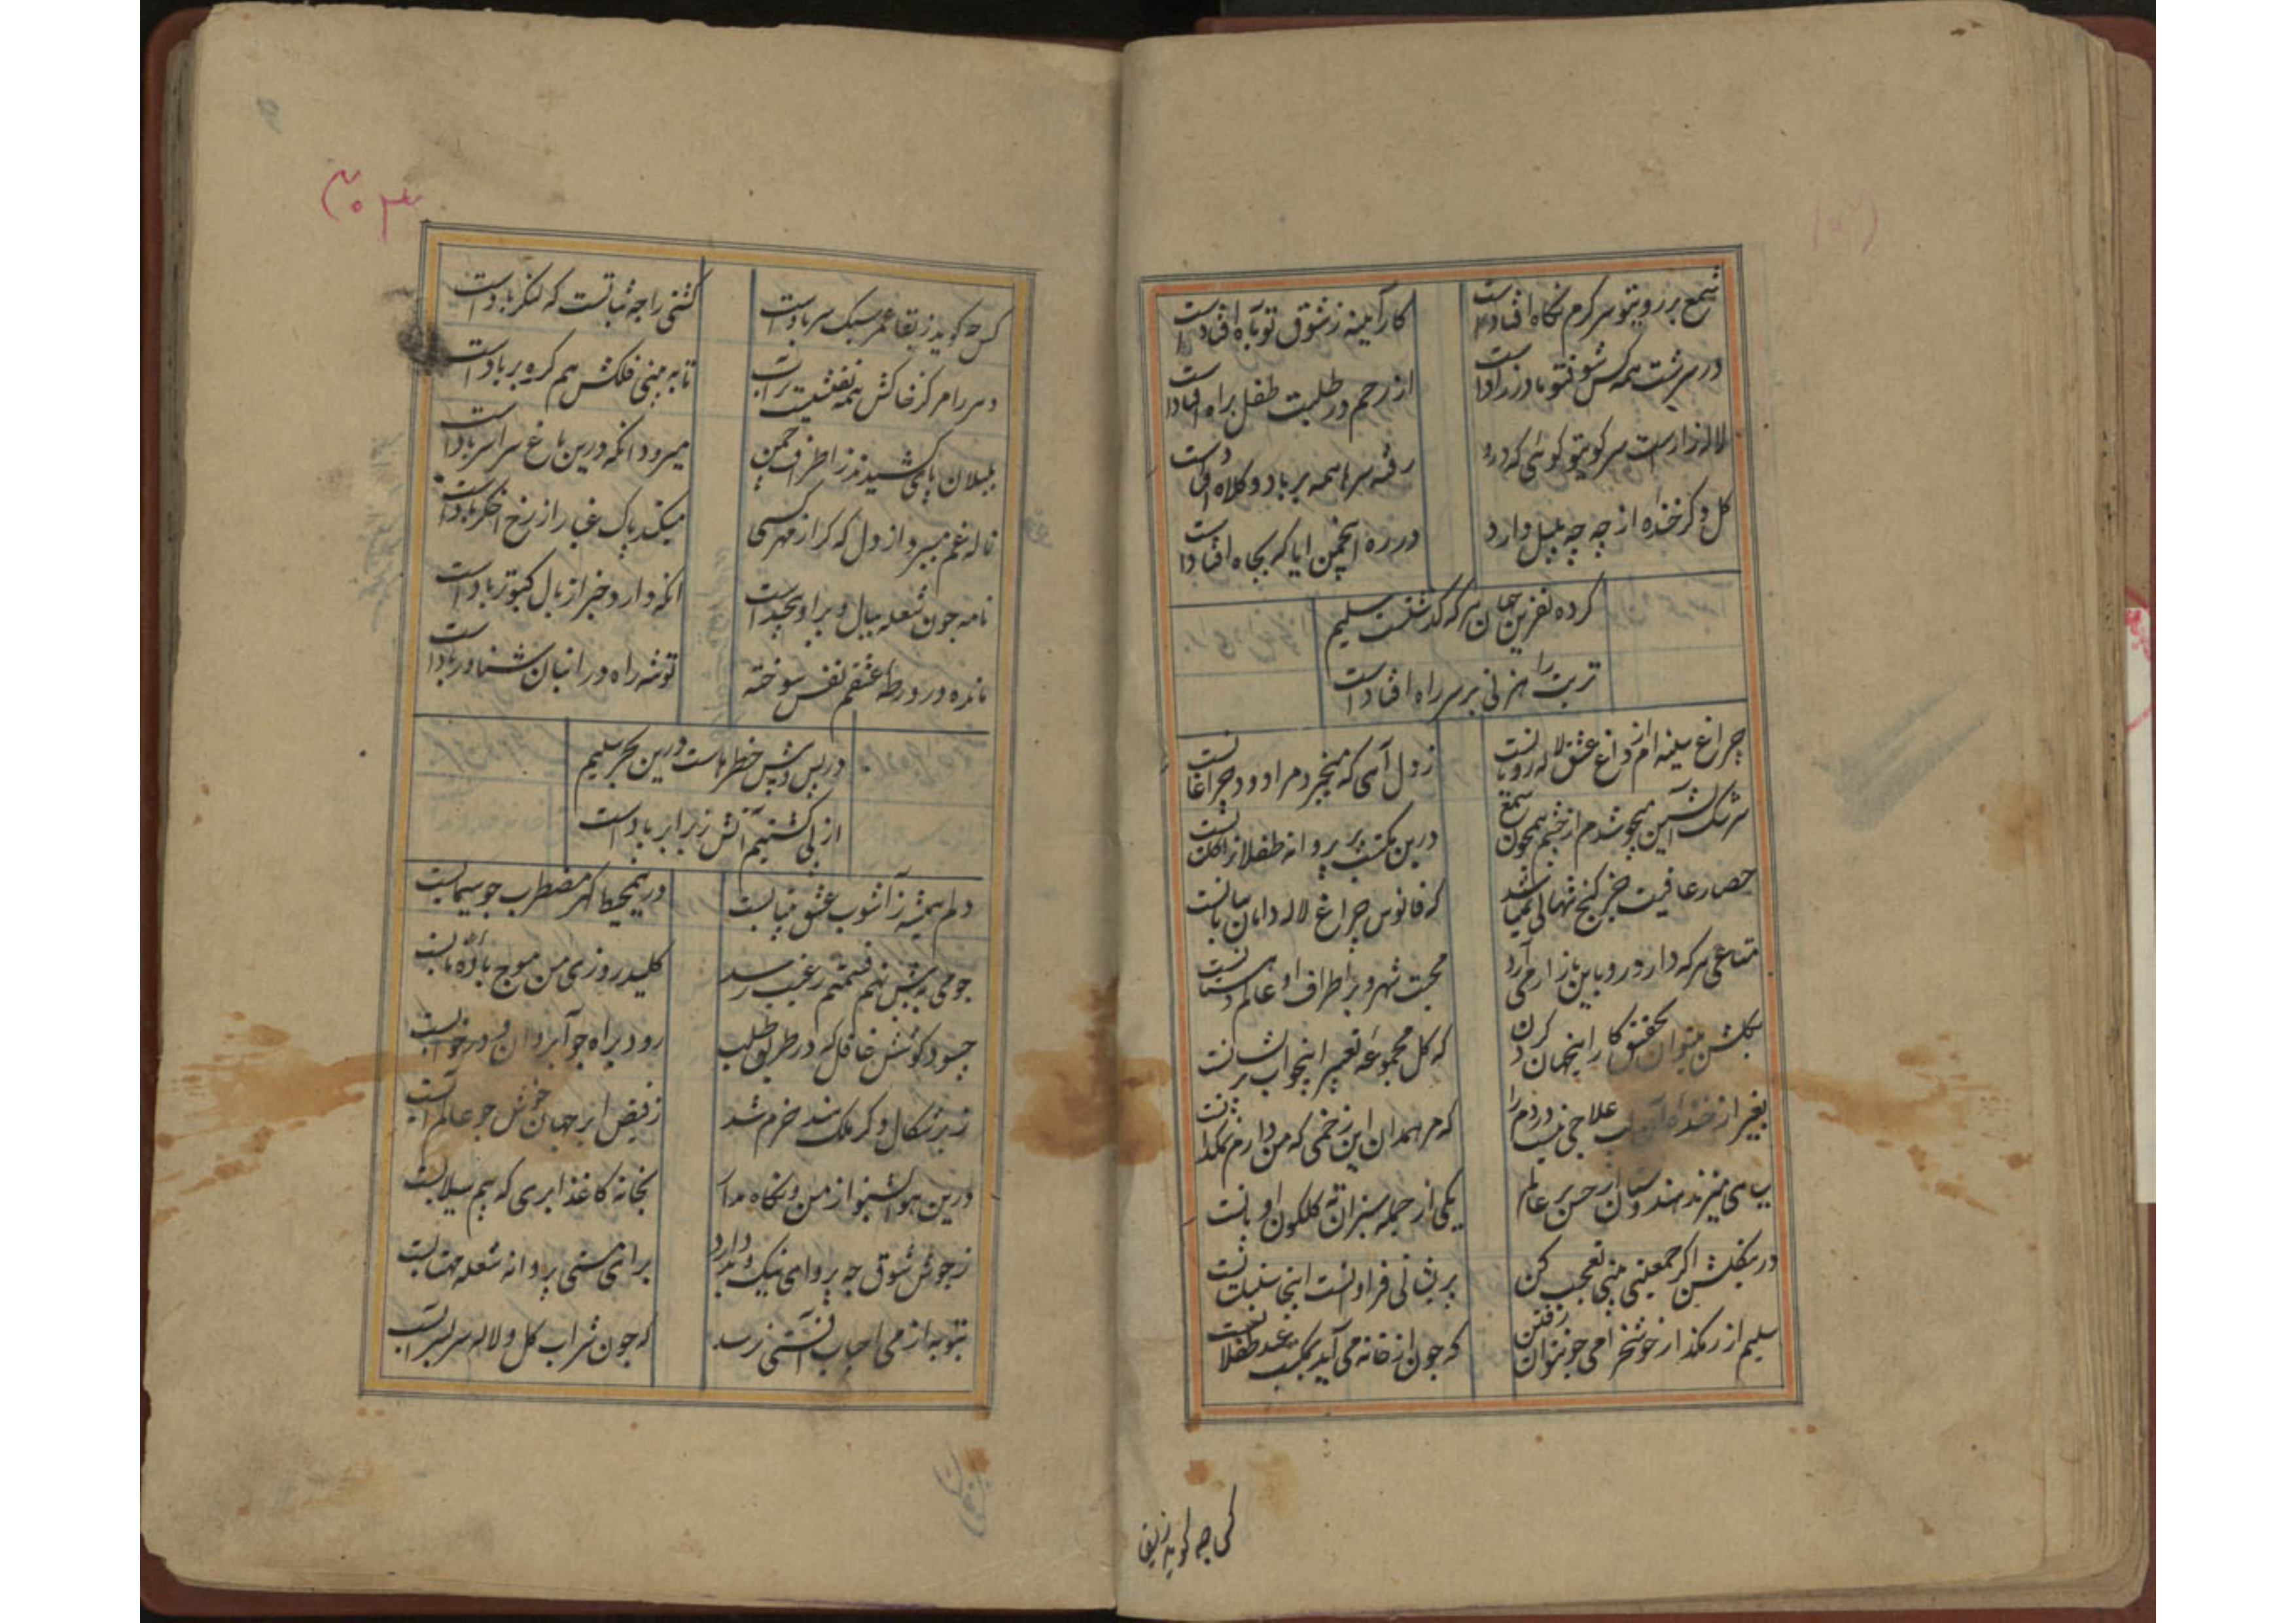 شمع بر رویتو سر کرم نکاه افتادست
کار آیینه ز شوق تو بآه افتادست
در سرشت همه کس شوقتو مادرزادا
از رحم در طلبت طفل براه افتادا
لاله زارست سر کویتو کوئی که درو
رفته سرها همه بر باد و کلاه افتادست
کل وکر خنده از چه چه بلبل دارد
در ره انجمن ایا که بچاه افتادست
کرده نفرین بجهان هر که گذشتست سلیم
تربت راهزنی بر سر راه افتادست
چراغ سینه ام از داغ عشق لاله رویانست
ز دل آهی که میخیزد مرا دود چراغانست
سرشک آتشین میجوشدم از چشم همچون شمع
درین مکتب پر پروانه طفلانرا کلستانست
حصار عافیت جز کنج تنهائی نمیباشد
که فانوس چراغ لاله دامان بیابانست
متاعی هر که دارد رو باین بازار می آرد
محبت شهر و بر اطراف او عالم دهستانست
بکلشن میتوان تحقیق کار اینجهان کردن
که کل مجموعه تعبیر اینخواب پریشانست
بغیر از خنده آن لب علاجی نیست دردم را
که مرهمدان این زخمی که من دارم نمکدانست
سیاهی میزند هندوستان از حسن بر عالم
یکی از جمله سبزان ته کلکون او پانست
درینکلشن اکر جمعیتی بینی تعجب کن
پریشانی فراوانست اینجا سنبلستانست
سلیم از رهکذار خوشخرامی چون توان رفتن
که چون از خانه می آید بمکتب عید طفلانست
کس چه کوید ز بقا عمر سبک سر بادست
کشتی را چه ثباتست که لنکر بادست
دهر را مرکز خاکش همه نقشیست بر آب
تا به بینی فلکش هم کره بر بادست
بلبلان پای کشیدند ز اطراف چمن
میرود انکه درین باغ سراسر بادست
ناله غم میبرد از دل که کر از مهر کسی
میکند پاک غبار از رخ اخکر بادست
نامه چون شعله ببال و پر او پیچیداست
انکه دارد خبر از بال کبوتر بادست
مانده در ورطه عشقم نفس سوخته
توشه راه در انبان شناور بادست
در پس و پیش خطرهاست درین بحر سلیم
از پی کشتیم آتش ز برابر بادست
دلم همیشه ز آشوب عشق بیتابست
درینمحیط کهر مضطرب چو سیمابست
چو می به پیش نهم قسمتم ز غیب رسد
کلید روزی من موج باده نابست
چسود کوشش غافل که در طریق طلب
رود براه چو آب روان و در خوابست
ز برشکال وکر ملک هند خرم شد
ز فیض ابر جهان خوش چو عالم آبست
درین هوا بشنو از من و نکاه مدار
بخانه کاغذ ابری که بیم سیلابست
ز جوش شوق چه پروای نیک و بد دارد
برای مستی پروانه شعله مهتابست
بتوبه از می احباب آفتی نرسد
که چون شراب کل و لاله سر بسر آبست
کس چه کوید ز بقا